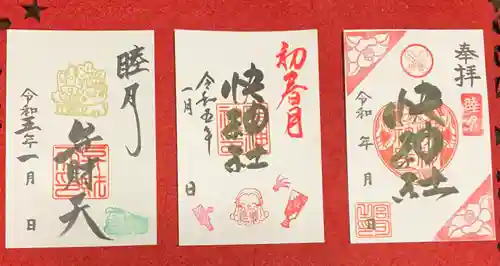 奉拝
睦月
快神社
令和 年 月 日
初春月
快神社
令和五年
一月 日
睦月
弁財天
令和五年一月 日